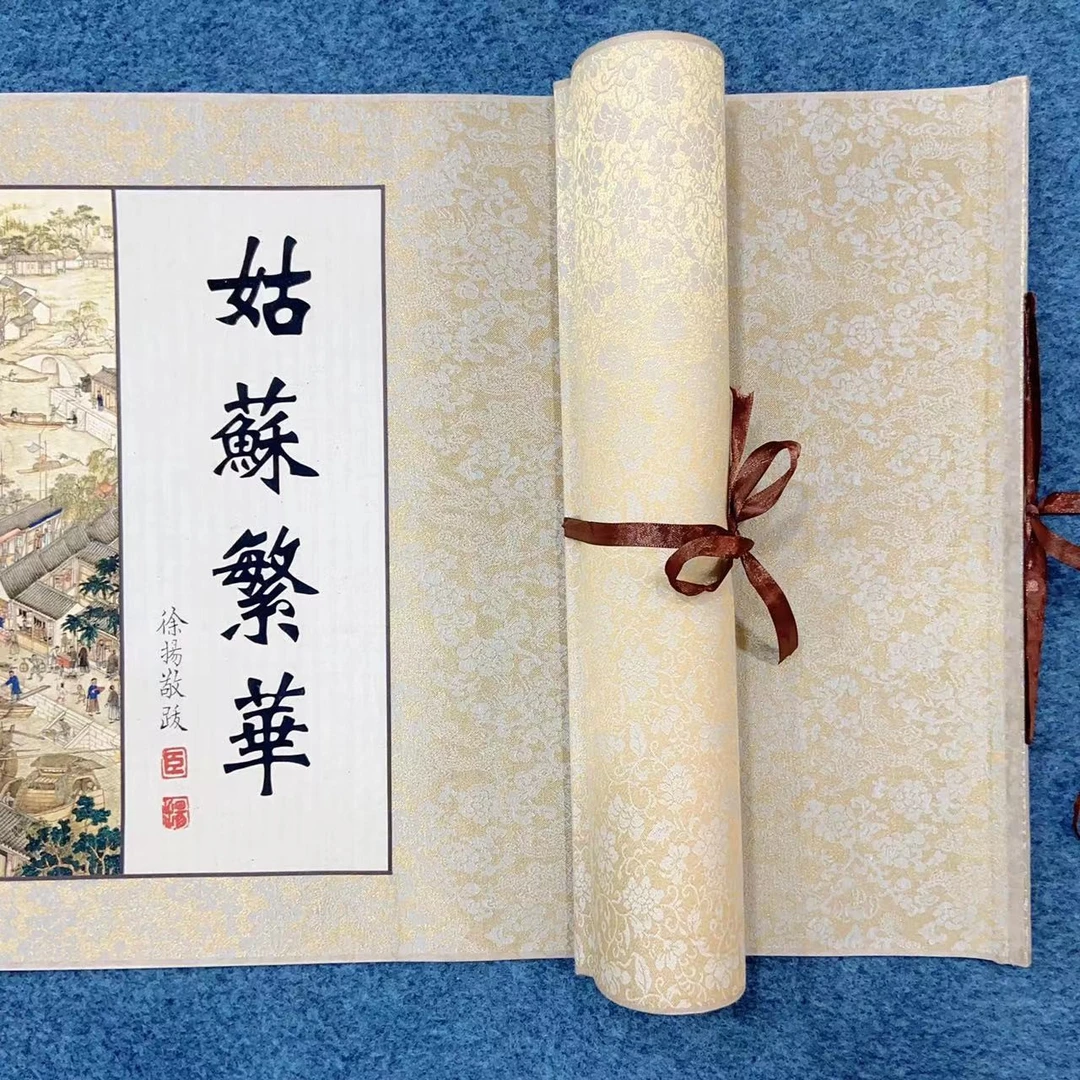 姑蘇繁華
徐揚敬跋
臣
揚